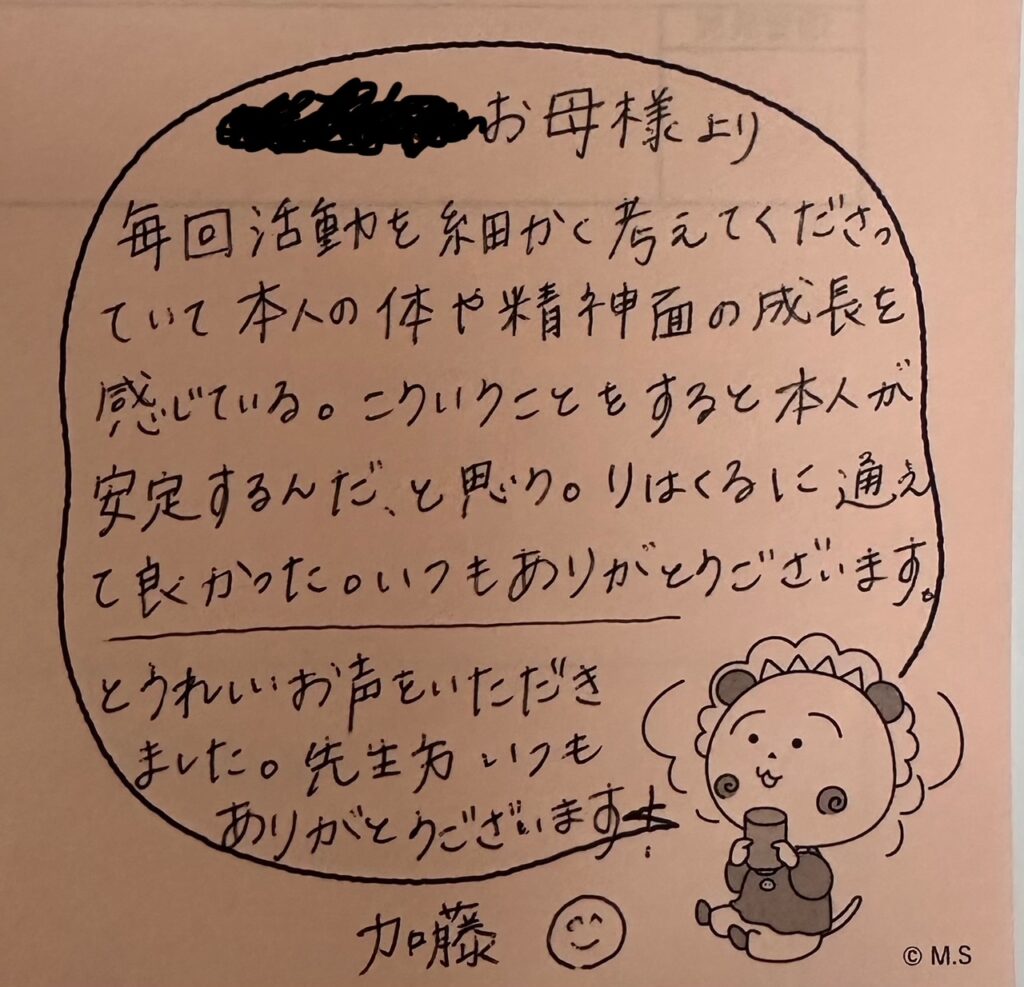 お母様より
毎回活動を細かく考えてくださっ
ていて本人の体や精神面の成長を
感じている。こういうことをすると本人が
安定するんだ、と思う。りはくるに通え
て良かった。いつもありがとうございます。
とうれしいお声をいただき
ました。先生方いつも
ありがとうございます!
加藤
© M.S